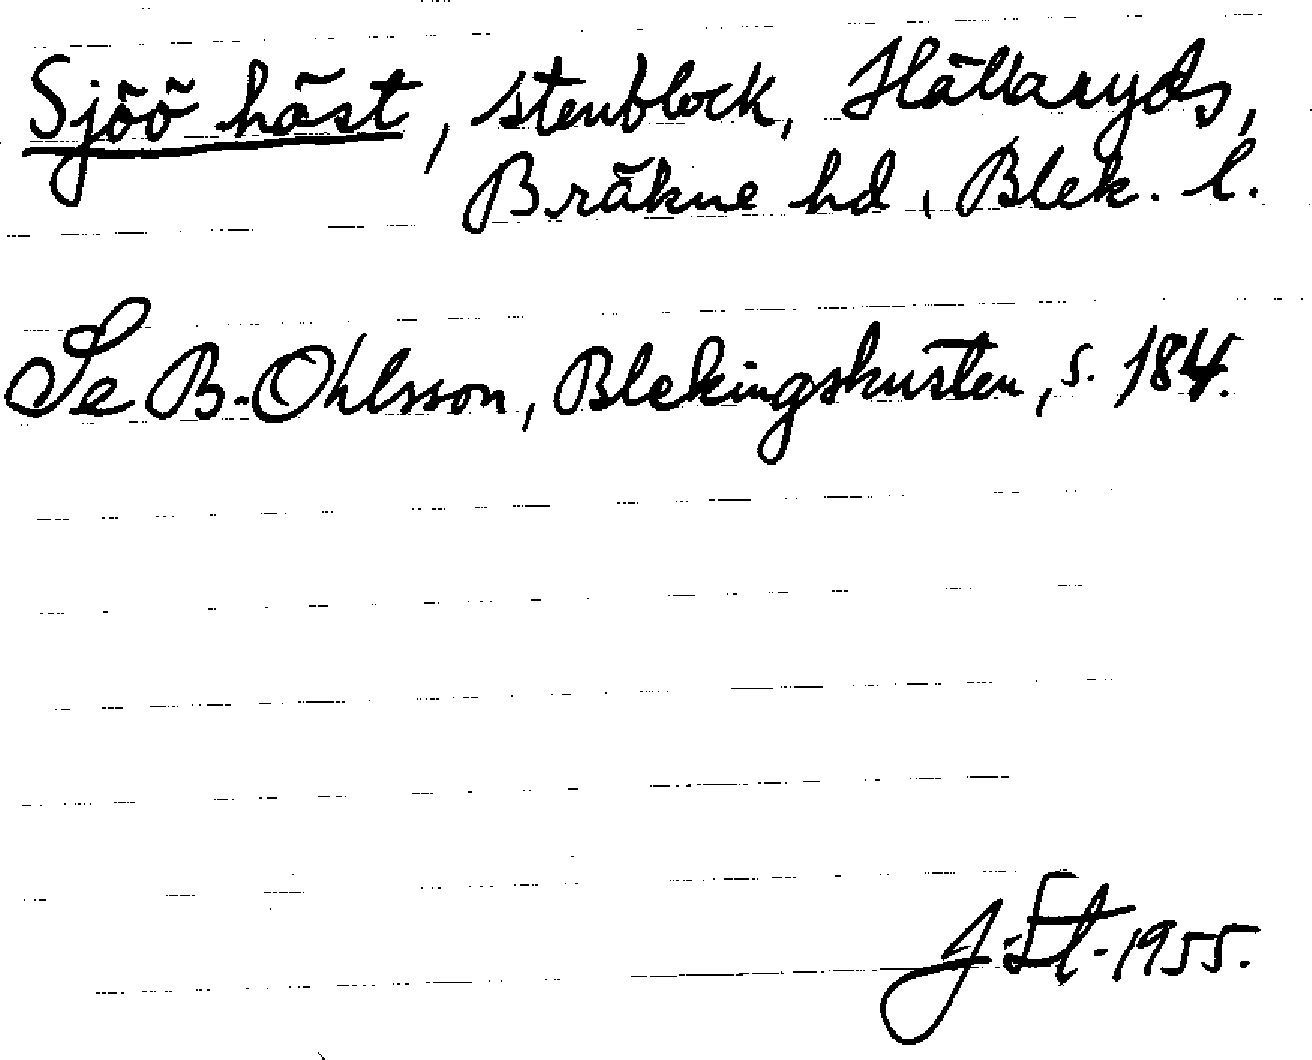 Sjöö häst, stenblock, Hällaryds,
Bräkne hd, Blek. l.
Se B. Ohlsson, Blekingskusten, s. 184.
1955.